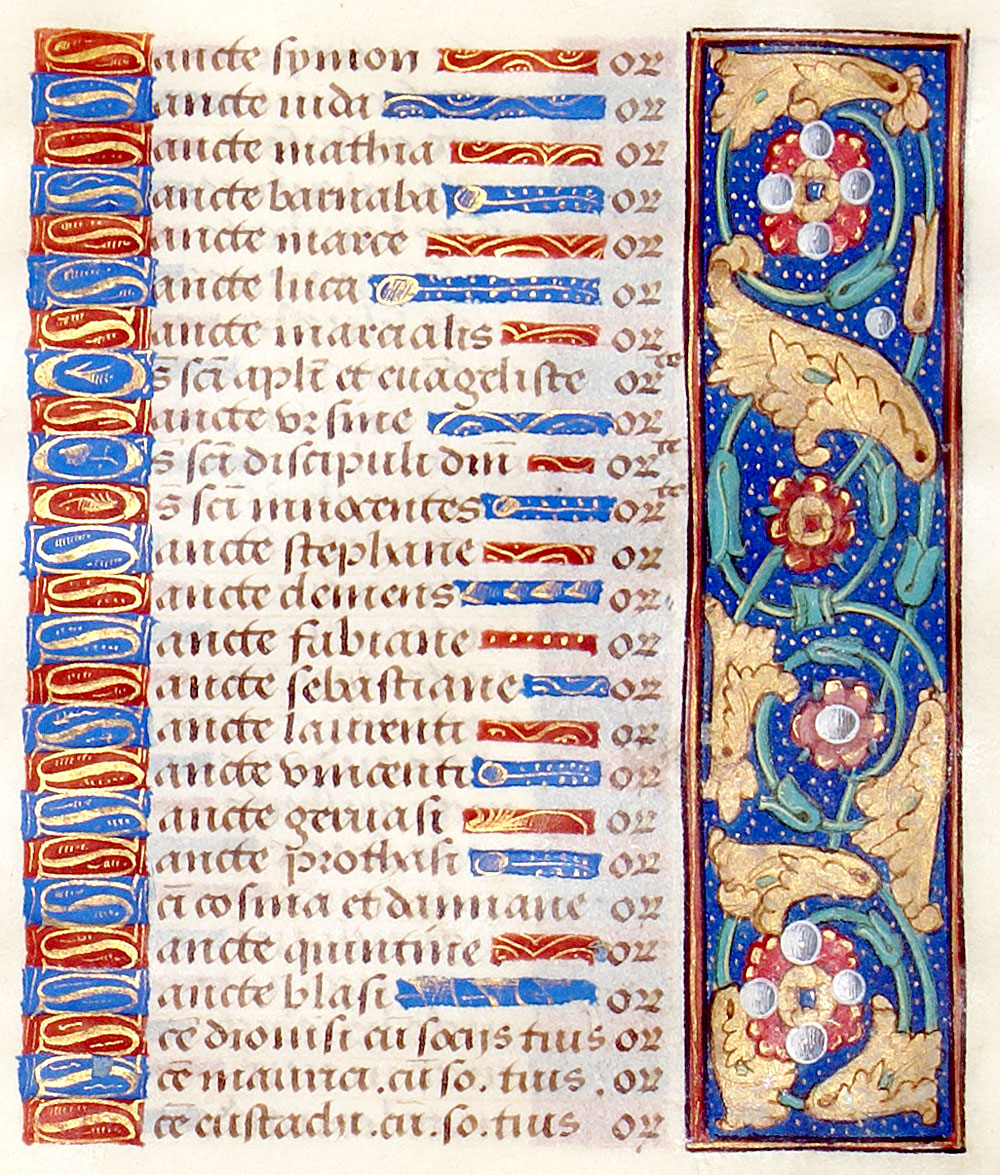 Sancte symon or
Sancte iuda or
Sancte mathia or
Sancte barnaba or
Sancte marce or
Sancte luca or
Sancte marcialis or
Os̄ sc̄i apl̄i et euāgeliste orᵗᵉ
Sancte vrsine or
Os̄ sc̄i discipuli dn̄i orᵗᵉ
Os̄ sc̄i innocentes orᵗᵉ
Sancte stephane or
Sancte clemens or
Sancte fabiane or
Sancte sebastiane or
Sancte laurenti or
Sancte vincenti or
Sancte geruasi or
Sancte prothasi or
Sc̄i cosma et damiane or
Sancte quintine or
Sancte blasi or
Sc̄e dionisi cū socijs tuis or
Sc̄e maurici . cū . so . tuis . or
Sc̄e eustachi . cū . so . tuis or